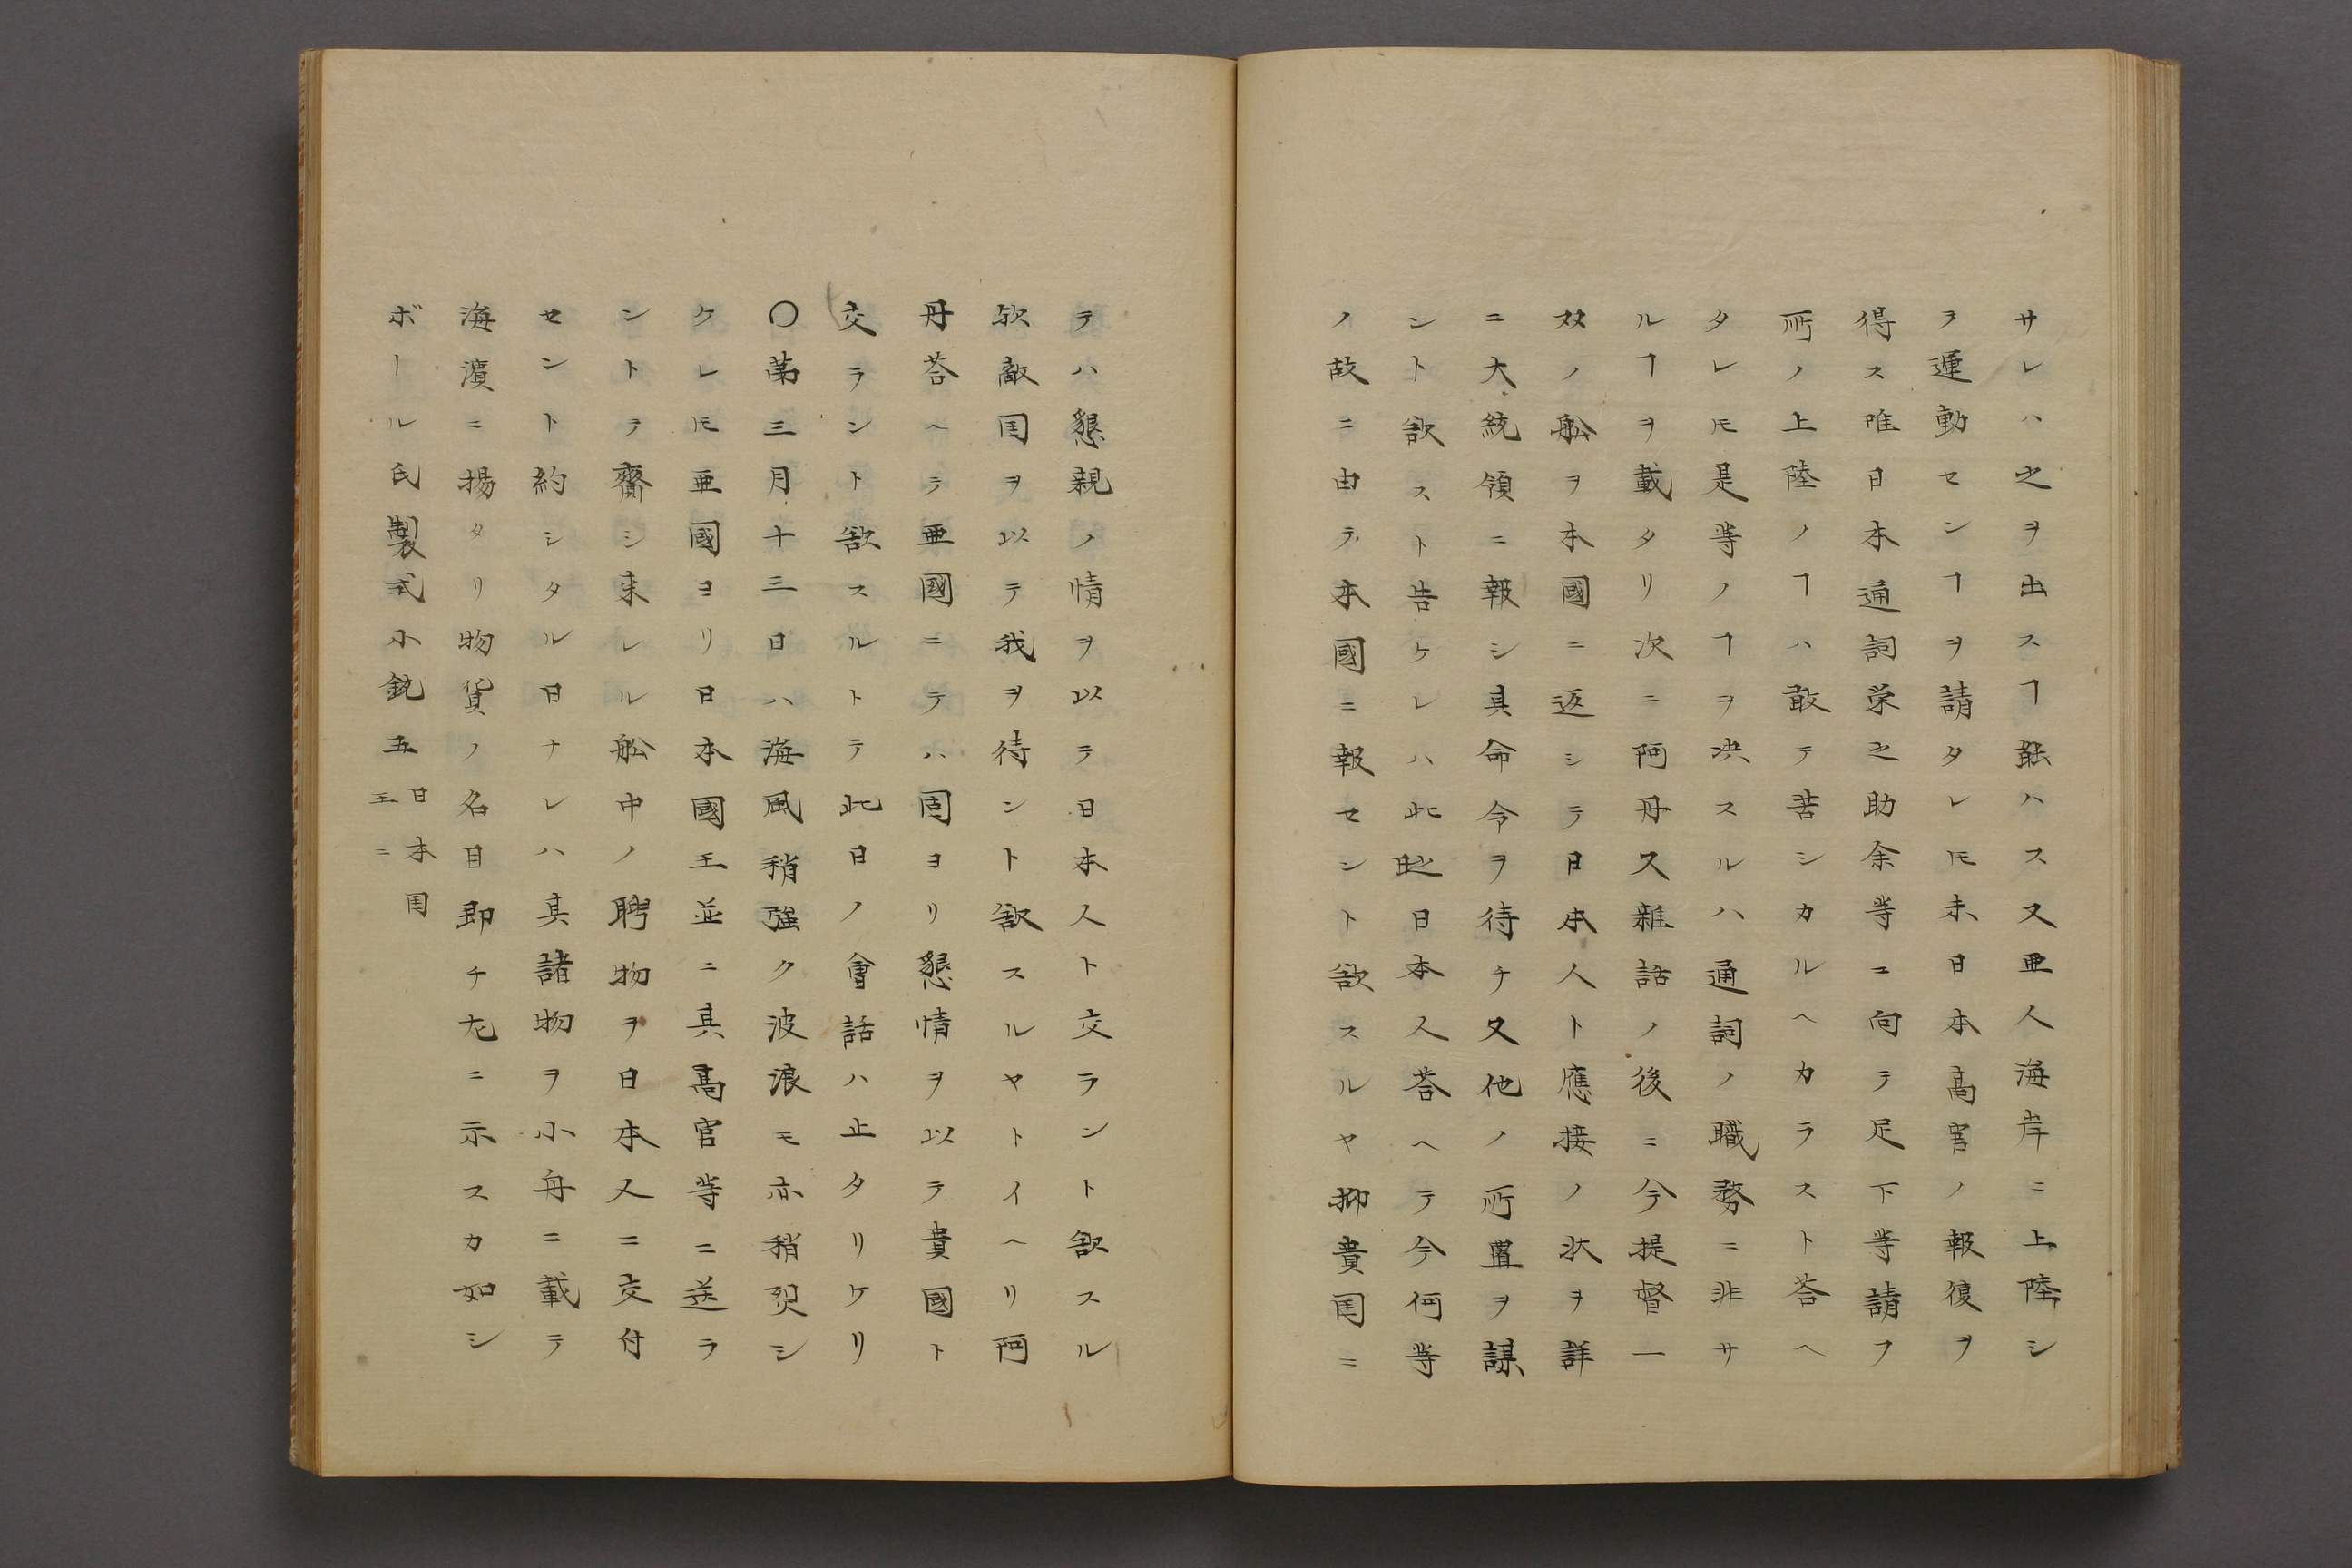 サレハ之ヲ出スヿ能ハス又亜人海岸ニ上陸シ
ヲ運動センヿヲ請タレ𪜈未日本高官ノ報復ヲ
得ス唯日本通詞栄之助余等ニ向テ足下等請フ
所ノ上陸ノヿハ敢テ苦シカルヘカラスト荅へ
タレ𪜈是等ノヿヲ决スルハ通詞ノ職務ニ非サ
ルヿヲ載タリ次ニ阿丹又雜話ノ後ニ今提督一
双ノ舩ヲ本國ニ返シテ日本人ト應接ノ状ヲ詳
ニ大統領ニ報シ其命令ヲ待チ又他ノ所置ヲ謀
ント欲スト告ケレハ此時日本人荅ヘテ今何等
ノ故ニ由テ本國ニ報セント欲スルヤ抑貴国ニ
テハ懇親ノ情ヲ以テ日本人ト交ラント欲スル
欤敵国ヲ以テ我ヲ待ント欲スルヤトイヘリ阿
丹荅ヘテ亜國ニテハ固ヨリ懇情ヲ以テ貴國ト
交ラント欲スルトテ此日ノ會話ハ止タリケリ
〇第三月十三日ハ海風稍強ク波浪モ亦稍烈シ
クレ𪜈亜國ヨリ日本國王並ニ其高官等ニ送ラ
ントテ齎シ来レル舩中ノ聘物ヲ日本人ニ交付
セント約シタル日ナレハ其諸物ヲ小舟ニ載テ
海濱ニ揚タリ物貨ノ名目即チ左ニ示スカ如シ
ボール氏製式小銃五 日本国
王ニ